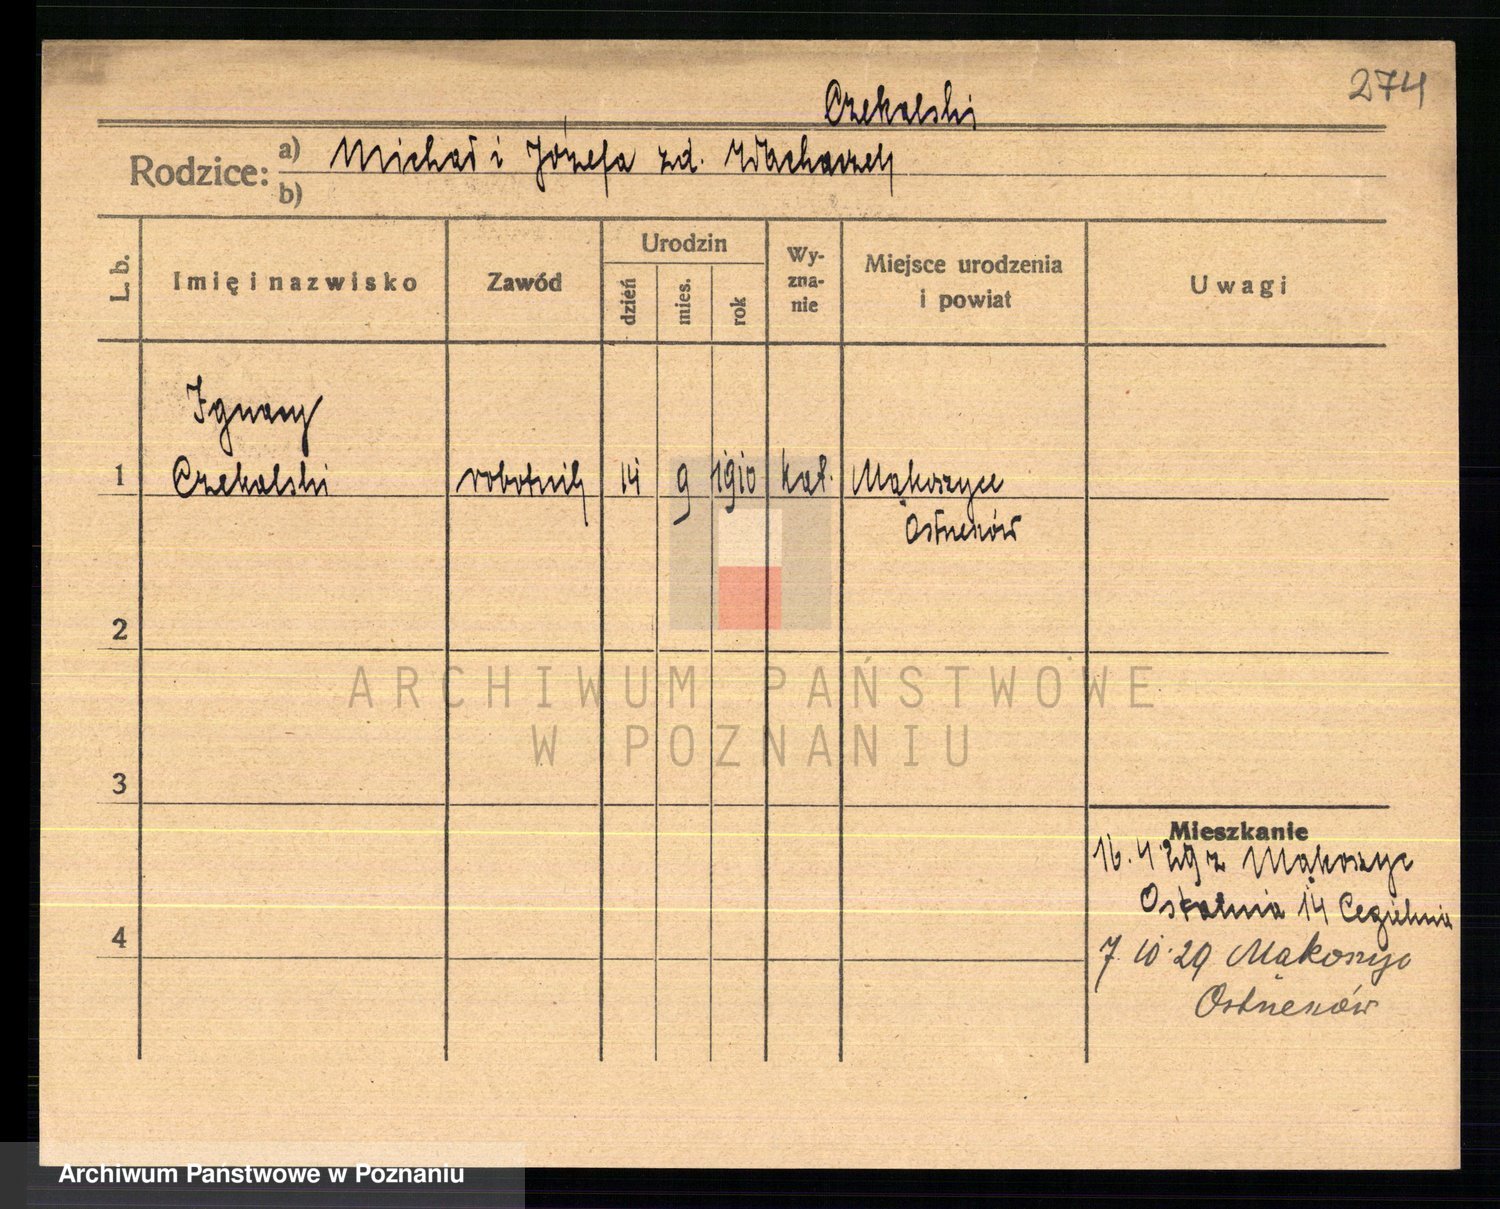 274
Czekalski
Rodzice: a) Michał i Józefa zd. Wachaszek
b)
L. b.
Imię i nazwisko
Zawód
Urodzin
dzień
mies.
rok
Wy-
zna-
nie
Miejsce urodzenia
i powiat
Uwagi
Ignacy
1 Czekalski robotnik 14 9 1910 kat. Mąkoszyce
Ostrzeszów
2
3
4
Mieszkanie
16.4.29 z Mąkoszyc
14 Cegielnia
7.10.29 Mąkoszyc
Ostrzeszów
ARCHIWUM PAŃSTWOWE
W POZNANIU
Archiwum Państwowe w Poznaniu